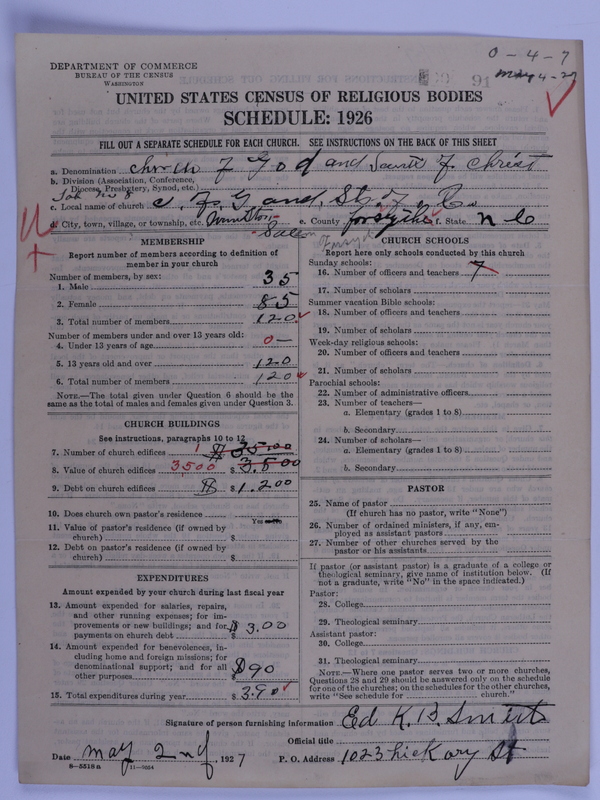 0-4-7
DEPARTMENT OF COMMERCE
BUREAU OF THE CENSUS
WASHINGTON
91
May 4-27
UNITED STATES CENSUS OF RELIGIOUS BODIES
SCHEDULE: 1926
FILL OUT A SEPARATE SCHEDULE FOR EACH CHURCH. SEE INSTRUCTIONS ON THE BACK OF THIS SHEET
a. Denomination church of God and Saints of Christ
b. Division (Association, Conference, Diocese, Presbytery, Synod, etc.)
c. Local name of church C. of G and. St. of C.
d. City, town, village, or township, etc. Winston Salem e. County forsythe f. State N C
MEMBERSHIP
Report number of members according to definition of member in your church
Number of members, by sex:
1. Male 35
2. Female 85
3. Total number of members 120
Number of members under and over 13 years old:
4. Under 13 years of age 0 —
5. 13 years old and over 120
6. Total number of members 120
NOTE.—The total given under Question 6 should be the same as the total of males and females given under Question 3.
CHURCH BUILDINGS
See instructions, paragraphs 10 to 12
7. Number of church edifices 1 $ 3500
8. Value of church edifices 3500 $ 3.500
9. Debt on church edifices $ $1.200
10. Does church own pastor's residence Yes
11. Value of pastor's residence (if owned by church) $
12. Debt on pastor's residence (if owned by church) $
EXPENDITURES
Amount expended by your church during last fiscal year
13. Amount expended for salaries, repairs, and other running expenses; for improvements or new buildings; and for payments on church debt $ 3.00
14. Amount expended for benevolences, including home and foreign missions; for denominational support; and for all other purposes $90
15. Total expenditures during year $ 3.90
CHURCH SCHOOLS
Report here only schools conducted by this church
Sunday schools:
16. Number of officers and teachers 7
17. Number of scholars
Summer vacation Bible schools:
18. Number of officers and teachers
19. Number of scholars
Week-day religious schools:
20. Number of officers and teachers
21. Number of scholars
Parochial schools:
22. Number of administrative officers
23. Number of teachers—
a. Elementary (grades 1 to 8)
b. Secondary
24. Number of scholars—
a. Elementary (grades 1 to 8)
b. Secondary
PASTOR
25. Name of pastor
(If church has no pastor, write "None")
26. Number of ordained ministers, if any, employed as assistant pastors
27. Number of other churches served by the pastor or his assistants
If pastor (or assistant pastor) is a graduate of a college or theological seminary, give name of institution below. (If not a graduate, write "No" in the space indicated.)
Pastor:
28. College
29. Theological seminary
Assistant pastor:
30. College
31. Theological seminary
NOTE.—Where one pastor serves two or more churches, Questions 28 and 29 should be answered only on the schedule for one of the churches; on the schedules for the other churches, write "See schedule for church."
Signature of person furnishing information Ed K. B. Smith
Official title
Date May 2nd, 1927 P. O. Address 1023 hickory St
8-5518 a 11-9024